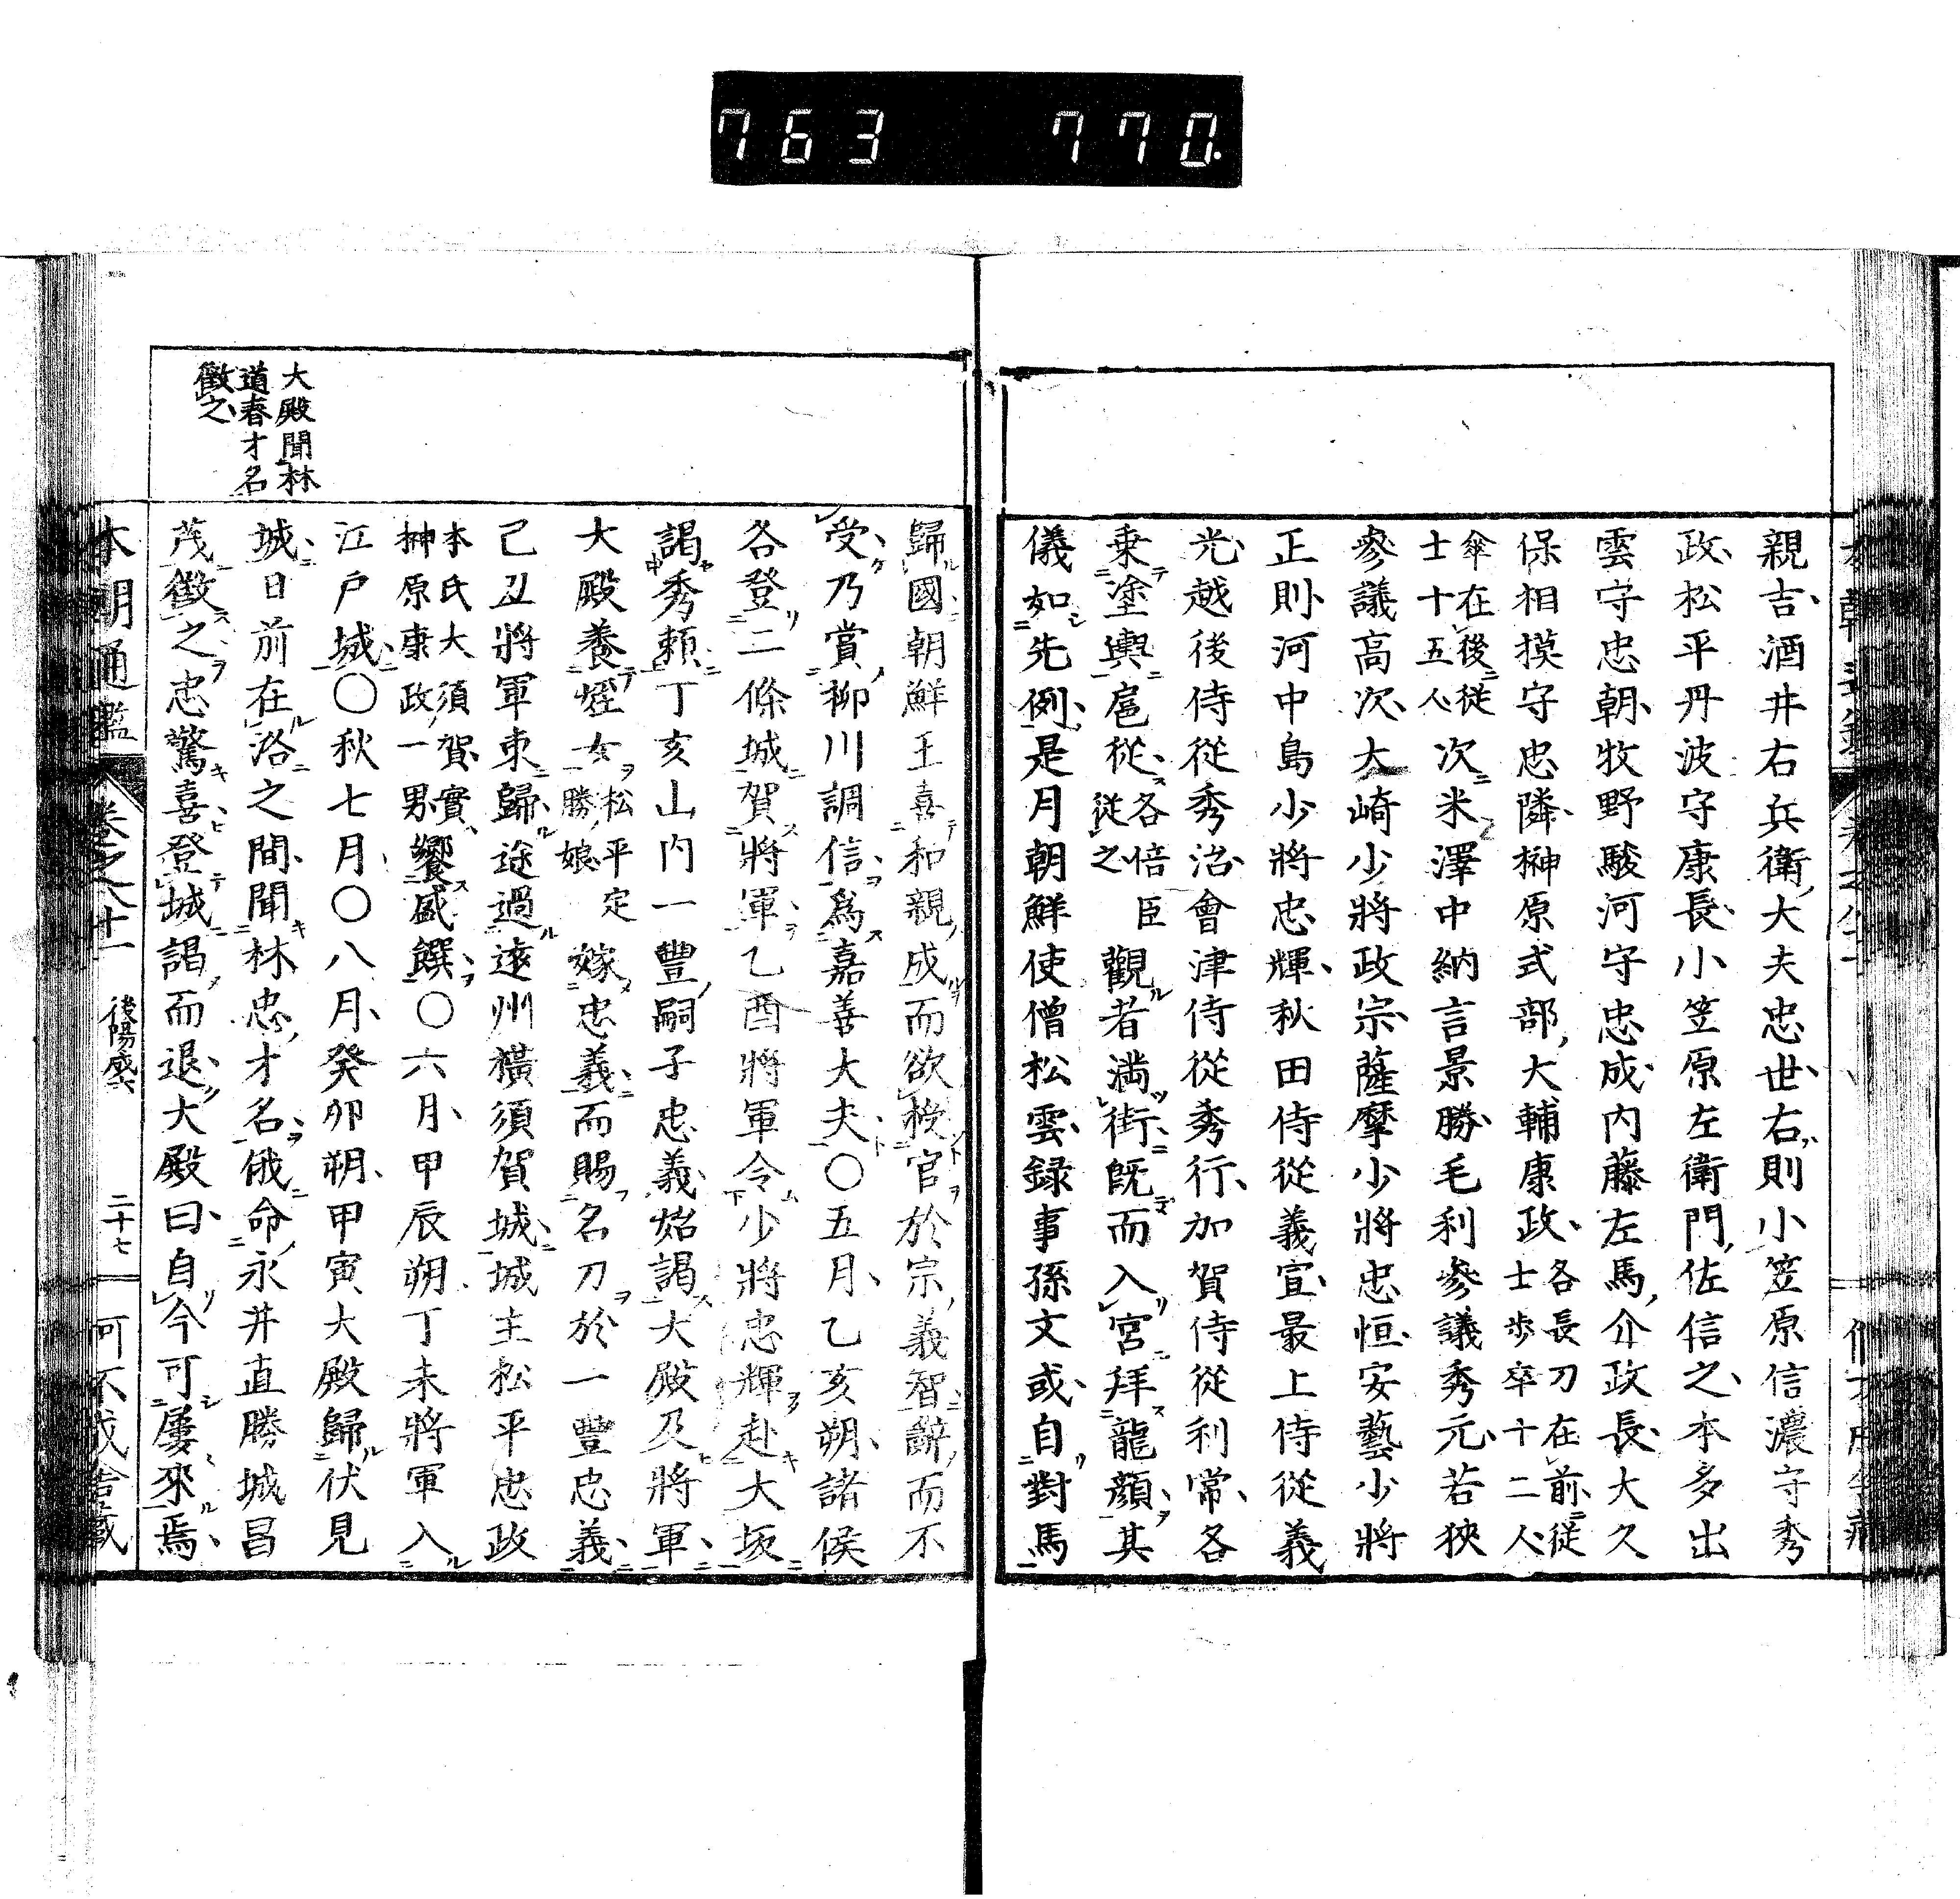 763 770.
親吉、酒井右兵衛大夫忠世、右ハ則小笠原信濃守秀
政、松平丹波守康長、小笠原左衛門佐信之、本多出
雲守忠朝、牧野駿河守忠成、内藤左馬介政長、大久
保相摸守忠隣、榊原式部大輔康政、各長刀在前從
士歩卒十二人
傘在後從
士十五人次米澤中納言景勝、毛利參議秀元、若狹
參議高次、大崎少將政宗、薩摩少將忠恒、安藝少將
正則、河中島少將忠輝、秋田侍從義宣、最上侍從義
光、越後侍從秀治、會津侍從秀行、加賀侍從利常、各
乗塗輿扈從、各倍臣
從之
觀者満街既而入宮拜龍顔、其
儀如先例、是月朝鮮使僧松雲、録事孫文或、自對馬
歸國朝鮮王喜和親成而欲授官於宗義智辭而不
受乃賞柳川調信爲嘉善大夫〇五月、乙亥朔、諸侯
各登二條城賀將軍乙酉將軍令少將忠輝赴大坂
謁秀頼丁亥山内一豐嗣子忠義始謁大殿及將軍、
大殿養姪女松平定
勝娘嫁忠義而賜名刀於一豐忠義、
己丑將軍東歸途過遠州横須賀城城主松平忠政
本氏大須賀實ハ
榊原康政一男
饗盛饌〇六月、甲辰朔丁未將軍入
江戸城〇秋七月〇八月、癸卯朔、甲寅大殿歸伏見
城、日前在洛之間、聞林忠才名俄命永井直勝城昌
茂徴之忠驚喜登城謁而退、大殿曰、自今可屢來焉、
大殿聞林
道春才名
徴之
本朝通鑑
卷之八十一
後陽成
二十七